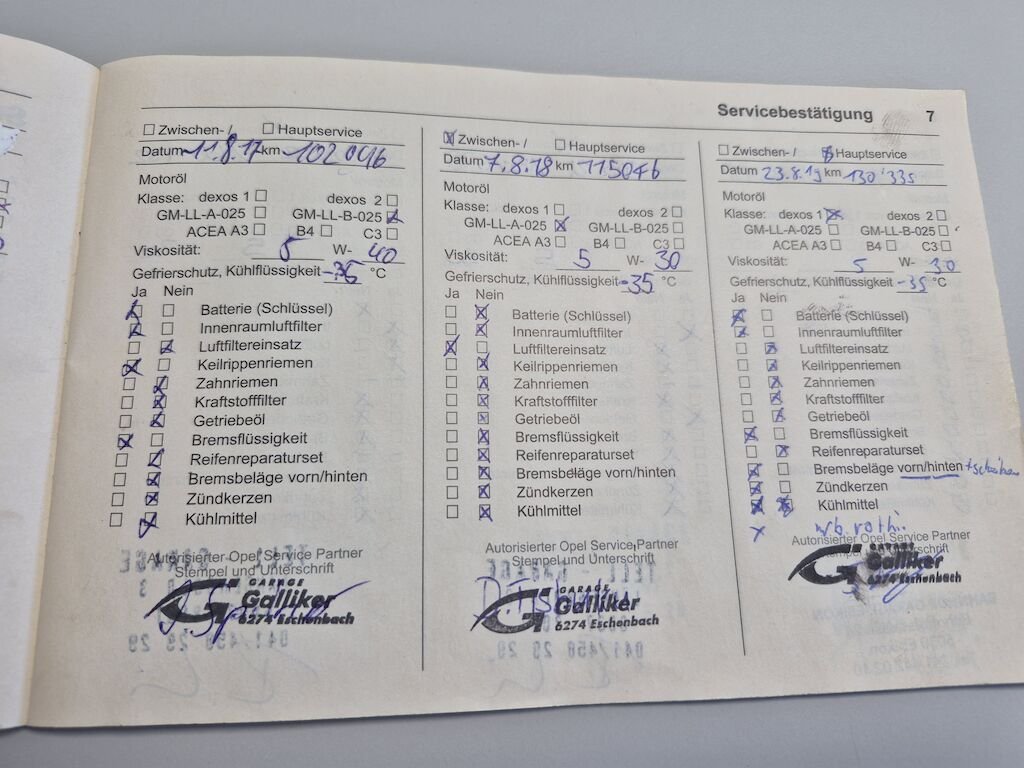 Servicebestätigung 7
☐ Zwischen- / ☐ Hauptservice
Datum 11.8.17 km 102 046
Motoröl
Klasse: dexos 1 ☐ dexos 2 ☐
GM-LL-A-025 ☐ GM-LL-B-025 ☒
ACEA A3 ☐ B4 ☐ C3 ☐
Viskosität: 5 W- 40
Gefrierschutz, Kühlflüssigkeit -36 °C
Ja Nein
☒ ☐ Batterie (Schlüssel)
☒ ☐ Innenraumluftfilter
☐ ☒ Luftfiltereinsatz
☒ ☐ Keilrippenriemen
☐ ☒ Zahnriemen
☐ ☒ Kraftstofffilter
☐ ☒ Getriebeöl
☒ ☐ Bremsflüssigkeit
☐ ☒ Reifenreparaturset
☐ ☒ Bremsbeläge vorn/hinten
☐ ☒ Zündkerzen
☐ ☒ Kühlmittel
Autorisierter Opel Service Partner
Stempel und Unterschrift
GARAGE
Galliker
6274 Eschenbach
☒ Zwischen- / ☐ Hauptservice
Datum 7.8.18 km 115046
Motoröl
Klasse: dexos 1 ☐ dexos 2 ☐
GM-LL-A-025 ☒ GM-LL-B-025 ☐
ACEA A3 ☐ B4 ☐ C3 ☐
Viskosität: 5 W- 30
Gefrierschutz, Kühlflüssigkeit -35 °C
Ja Nein
☐ ☒ Batterie (Schlüssel)
☐ ☒ Innenraumluftfilter
☒ ☐ Luftfiltereinsatz
☐ ☒ Keilrippenriemen
☐ ☒ Zahnriemen
☐ ☒ Kraftstofffilter
☐ ☒ Getriebeöl
☐ ☒ Bremsflüssigkeit
☐ ☒ Reifenreparaturset
☐ ☒ Bremsbeläge vorn/hinten
☐ ☒ Zündkerzen
☐ ☒ Kühlmittel
Autorisierter Opel Service Partner
Stempel und Unterschrift
GARAGE
Galliker
6274 Eschenbach
☐ Zwischen- / ☒ Hauptservice
Datum 23.8.19 km 130'335
Motoröl
Klasse: dexos 1 ☒ dexos 2 ☐
GM-LL-A-025 ☐ GM-LL-B-025 ☐
ACEA A3 ☐ B4 ☐ C3 ☐
Viskosität: 5 W- 30
Gefrierschutz, Kühlflüssigkeit -35 °C
Ja Nein
☒ ☐ Batterie (Schlüssel)
☒ ☐ Innenraumluftfilter
☐ ☒ Luftfiltereinsatz
☐ ☒ Keilrippenriemen
☐ ☒ Zahnriemen
☐ ☒ Kraftstofffilter
☐ ☒ Getriebeöl
☒ ☐ Bremsflüssigkeit
☐ ☒ Reifenreparaturset
☒ ☐ Bremsbeläge vorn/hinten
☒ ☐ Zündkerzen
☒ ☒ Kühlmittel
Autorisierter Opel Service Partner
GARAGE
Galliker
6274 Eschenbach